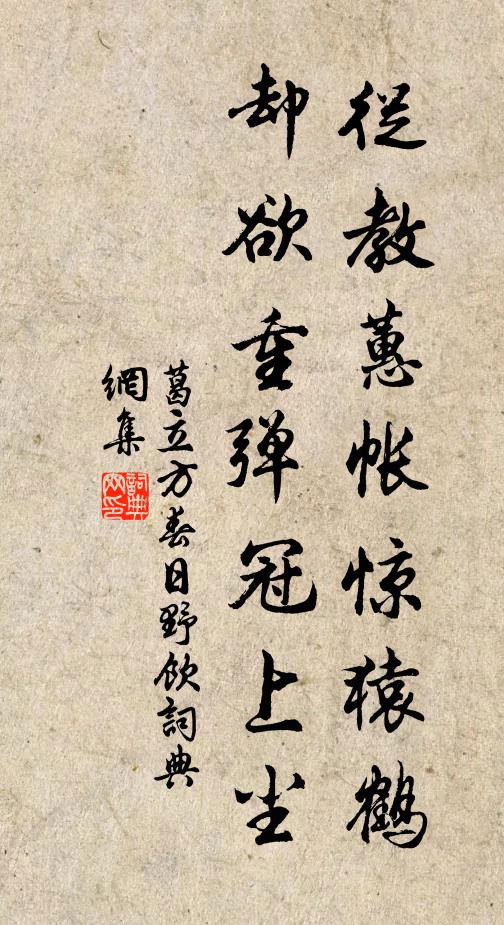 從教蕙帐惊猿鶴
却欲重弹冠上尘
葛立方春日野飲詞典
網集
詞典
网印